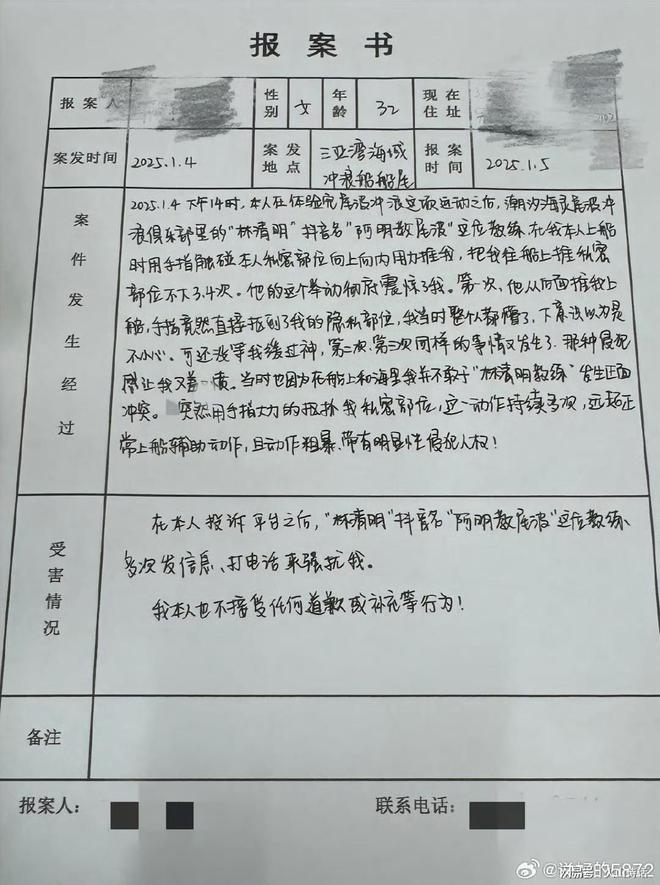 报案书
报案人 性别 女 年龄 32 现在住址
案发时间 2025.1.4 案发地点 三亚湾海域冲浪船船尾 报案时间 2025.1.5
案件发生经过
2025.1.4 下午14时,本人在体验完尾波冲浪这项运动之后,潮汐海灵尾波冲
浪俱乐部里的“林清明”抖音名“阿明教尾波”这位教练,在我本人上船
时用手指触碰本人私密部位向上向内用力推我,把我往船上推私密
部位不下3,4次。他的这个举动彻底震惊了我。第一次,他从后面推我上
船,手指竟然直接抵到了我的隐私部位,我当时整个人都懵了,下意识以为是
不小心。可还没等我缓过神,第二次、第三次同样的事情又发生了,那种侵犯
感让我又羞又愤。当时也因为在船上和海里我并不敢于“林清明教练”发生正面
冲突。突然用手指大力的 我私密部位,这一动作持续多次,远超正
常上船辅助动作,且动作粗暴、带有明显性侵犯人权!
受害情况
在本人投诉平台之后,“林清明”抖音名“阿明教尾波”这位教练、
多次发信息、打电话来骚扰我。
我本人也不接受任何道歉或补充等行为!
备注
报案人: 联系电话: